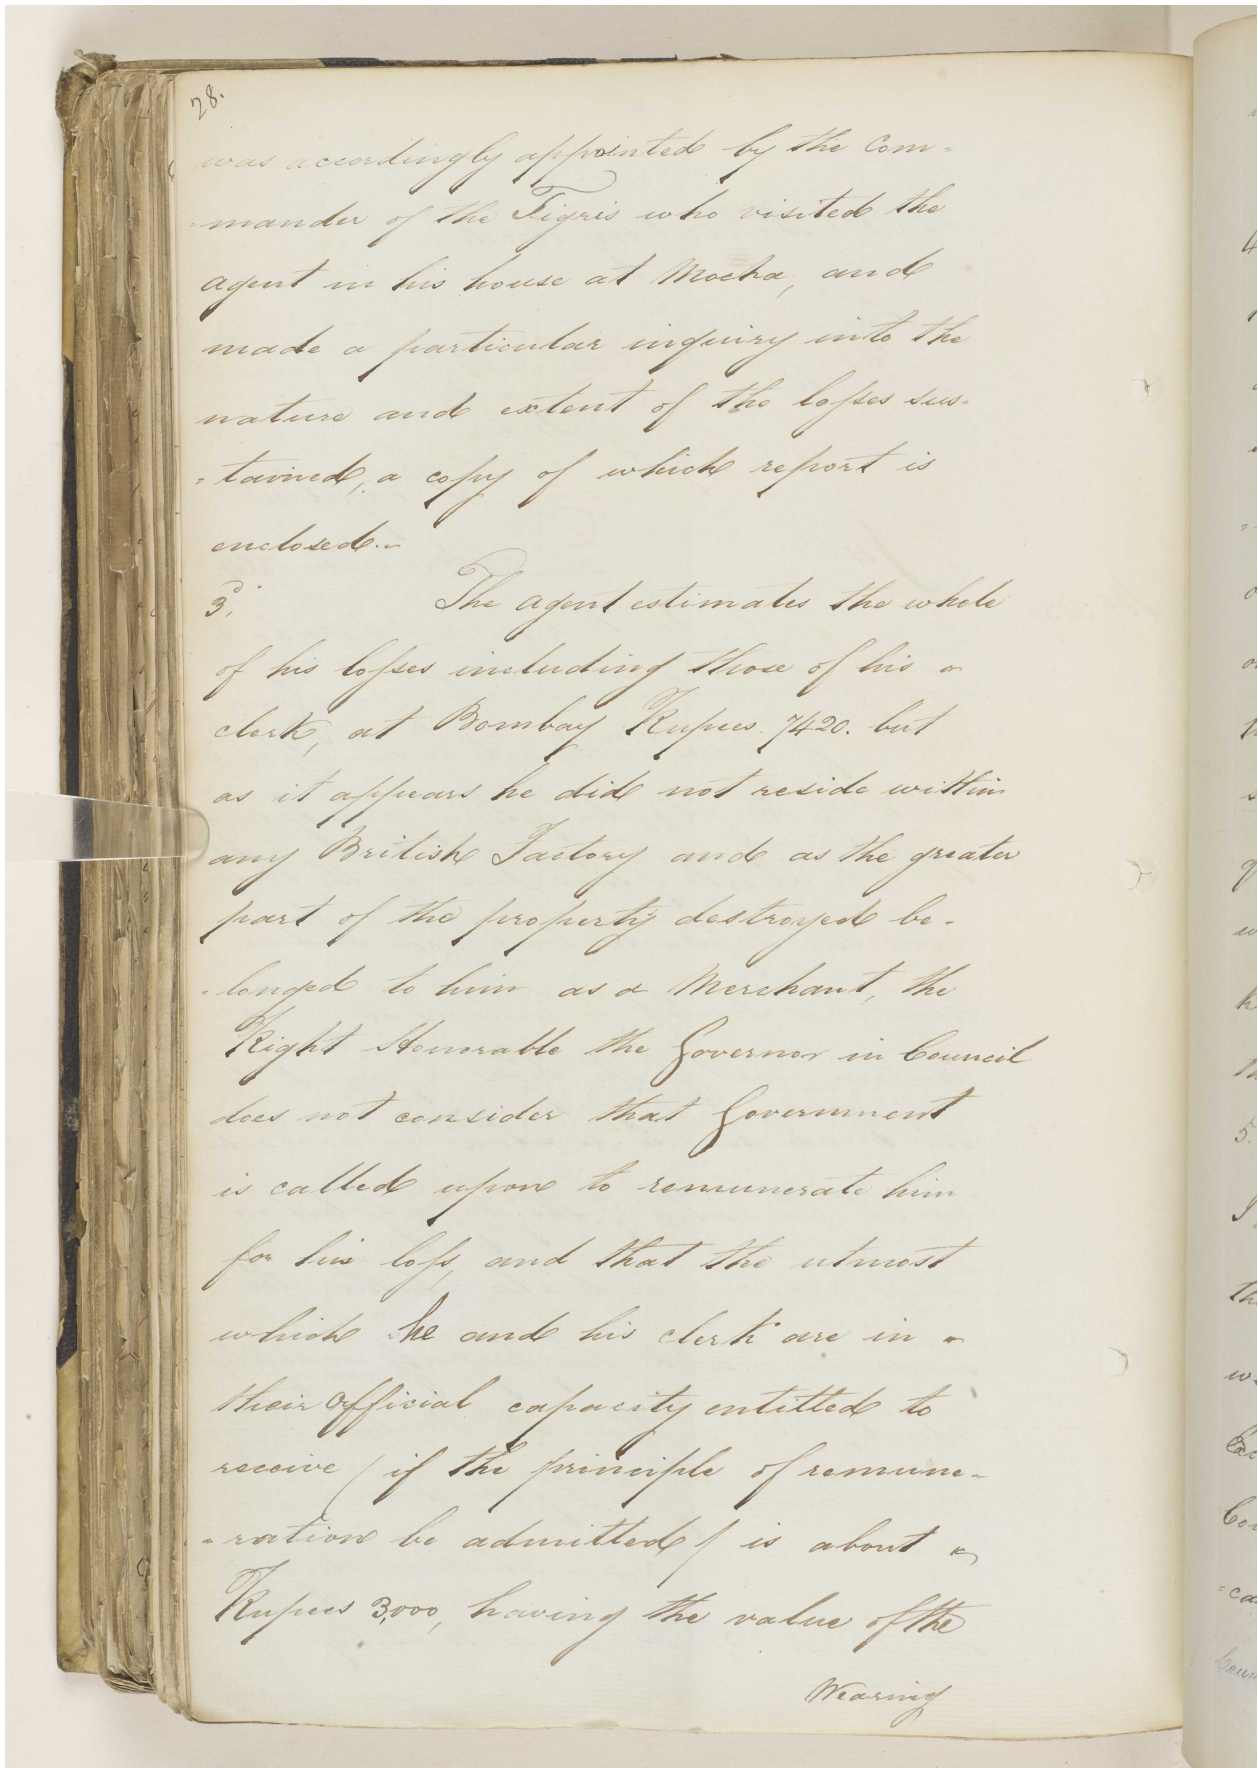 28.
was accordingly appointed by the Com-
-mander of the Tigris who visited the
agent in his house at Mocha, and
made a particular inquiry into the
nature and extent of the losses sus-
-tained, a copy of which report is
enclosed.-
3d. The agent estimates the whole
of his losses including those of his
clerk, at Bombay Rupees. 7420. but
as it appears he did not reside within
any British Factory and as the greater
part of the property destroyed be-
-longed to him as a Merchant, the
Right Honorable the Governor in Council
does not consider that Government
is called upon to remunerate him
for his loss, and that the utmost
which he and his clerk are in
their official capacity entitled to
receive (if the principle of remune-
-ration be admitted) is about
Rupees 3,000, having the value of the
Wearing